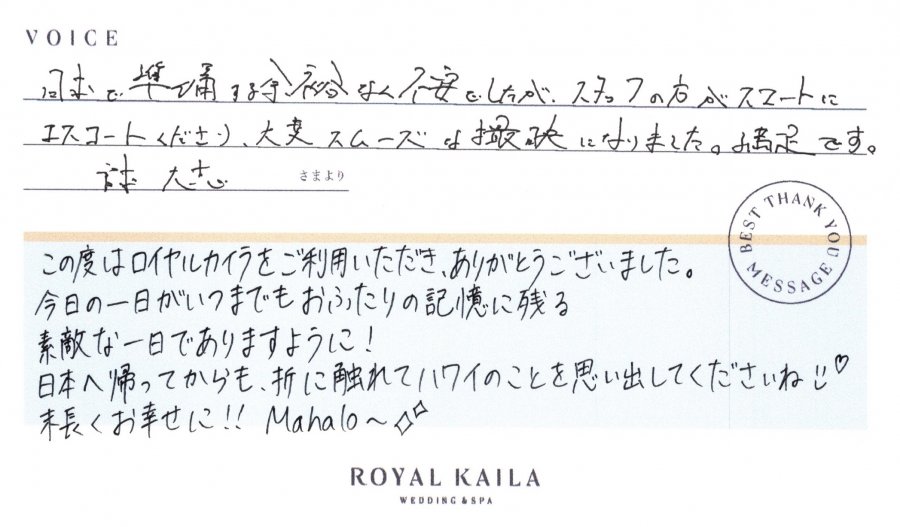 VOICE
日本で準備する余裕なく不安でしたが、スタッフの方がスマートに
エスコートくださり、大変スムーズな撮影になりました。満足です。
大志 さまより
BEST THANK YOU MESSAGE
この度はロイヤルカイラをご利用いただき、ありがとうございました。
今日の一日がいつまでもおふたりの記憶に残る
素敵な一日でありますように!
日本へ帰ってからも、折に触れてハワイのことを思い出してくださいね♡
末長くお幸せに!! Mahalo~
ROYAL KAILA
WEDDING & SPA